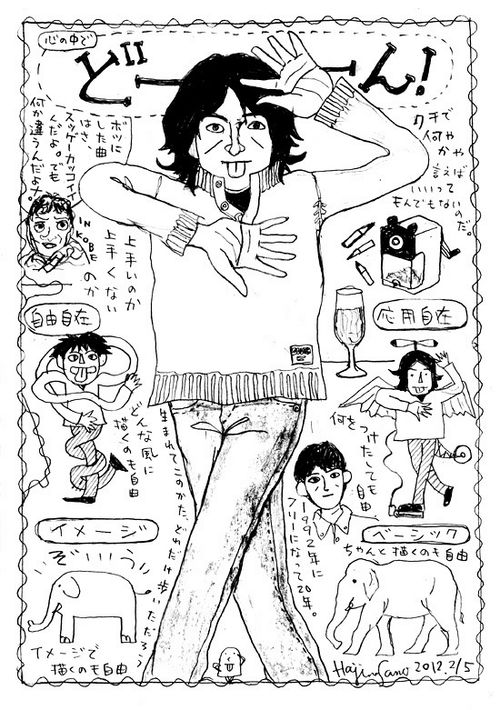 心の中で
ど"ーーーん!
ボツに
した曲
はさ、
スッゲーカッコイイ
んだよ。でも
何か違うんだよナ。
クチで
何やかや
言えば
いいって
モンでもないのだ。
IN
KOBE
上手いのか
上手くない
のか
自由自在
応用自在
どんな風に
描くのも自由
生まれてこのかた、どれだけ歩いただろう
何をつけたしても
自由
1992年に
フリーになって20年。
イメージ
ぞぃぃぅ
イメージで
描くのも自由
ベーシック
ちゃんと描くのも自由
Hajime Sano 2012.2/5